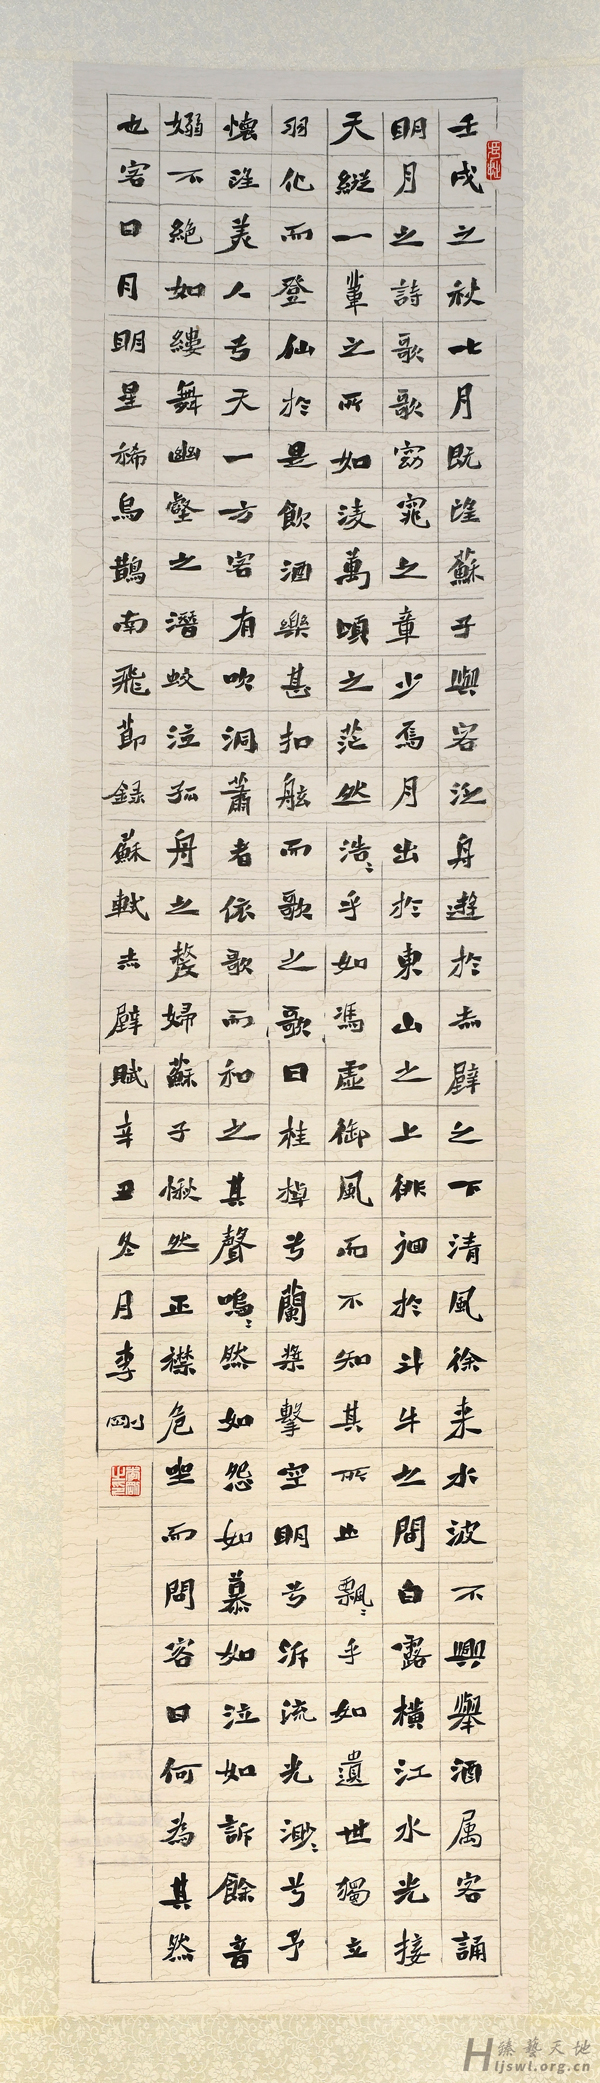 壬戌之秋七月既望蘇子與客泛舟遊於赤壁之下清風徐来水波不興舉酒属客誦
明月之詩歌歌窈窕之章少焉月出於東山之上徘徊於斗牛之間白露橫江水光接
天縱一葦之所如淩萬頃之茫然浩〻乎如馮虛御風而不知其所止飄〻乎如遺世獨立
羽化而登仙於是飲酒樂甚扣舷而歌之歌曰桂棹兮蘭槳擊空明兮泝流光渺〻兮予
懷望美人兮天一方客有吹洞蕭者依歌而和之其聲嗚〻然如怨如慕如泣如訴餘音
嫋不絕如縷舞幽壑之潛蛟泣孤舟之嫠婦蘇子愀然正襟危坐而問客曰何為其然
也客曰月明星稀烏鵲南飛節録蘇軾赤壁賦辛丑冬月李剛
臻藝天地
Hljswl.org.cn